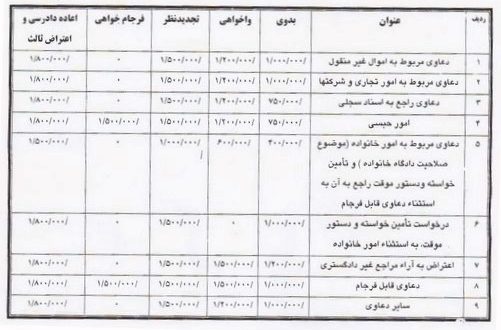 ردیف عنوان بدوی واخواهی تجدیدنظر فرجام خواهی اعاده دادرسی و
اعتراض ثالث
۱ دعاوی مربوط به اموال غیر منقول ۱/۰۰۰/۰۰۰/ ۱/۲۰۰/۰۰۰/ ۱/۵۰۰/۰۰۰/ ۰ ۱/۸۰۰/۰۰۰/
۲ دعاوی مربوط به امور تجاری و شرکتها ۱/۰۰۰/۰۰۰/ ۱/۲۰۰/۰۰۰/ ۱/۵۰۰/۰۰۰/ ۰ ۱/۸۰۰/۰۰۰/
۳ دعاوی راجع به اسناد سجلی ۷۵۰/۰۰۰/ ۱/۲۰۰/۰۰۰/ ۱/۵۰۰/۰۰۰/ ۰ ۱/۸۰۰/۰۰۰/
۴ امور حبسی ۷۵۰/۰۰۰/ ۱/۲۰۰/۰۰۰/ ۱/۵۰۰/۰۰۰/ ۱/۵۰۰/۰۰۰/ ۱/۸۰۰/۰۰۰/
۵ دعاوی مربوط به امور خانواده (موضوع ۴۰۰/۰۰۰/ ۶۰۰/۰۰۰/ ۱/۰۰۰/۰۰۰/ ۰ ۱/۵۰۰/۰۰۰/
صلاحیت دادگاه خانواده ) و تأمین /
خواسته ودستور موقت راجع به آن به
استثناء دعاوی قابل فرجام
۶ درخواست تأمین خواسته و دستور ۱/۰۰۰/۰۰۰/ ۰ ۱/۵۰۰/۰۰۰/ ۰ ۱/۸۰۰/۰۰۰/
موقت، به استثناء امور خانواده
۷ اعتراض به آراء مراجع غیر دادگستری ۱/۲۰۰/۰۰۰/ ۱/۵۰۰/۰۰۰/ ۱/۵۰۰/۰۰۰/ ۰ ۱/۸۰۰/۰۰۰/
۸ دعاوی قابل فرجام ۱/۰۰۰/۰۰۰/ ۱/۵۰۰/۰۰۰/ ۱/۵۰۰/۰۰۰/ ۱/۵۰۰/۰۰۰/ ۱/۸۰۰/۰۰۰/
۹ سایر دعاوی ۱/۰۰۰/۰۰۰/ ۱/۲۰۰/۰۰۰/ ۱/۵۰۰/۰۰۰/ ۰ ۱/۸۰۰/۰۰۰/